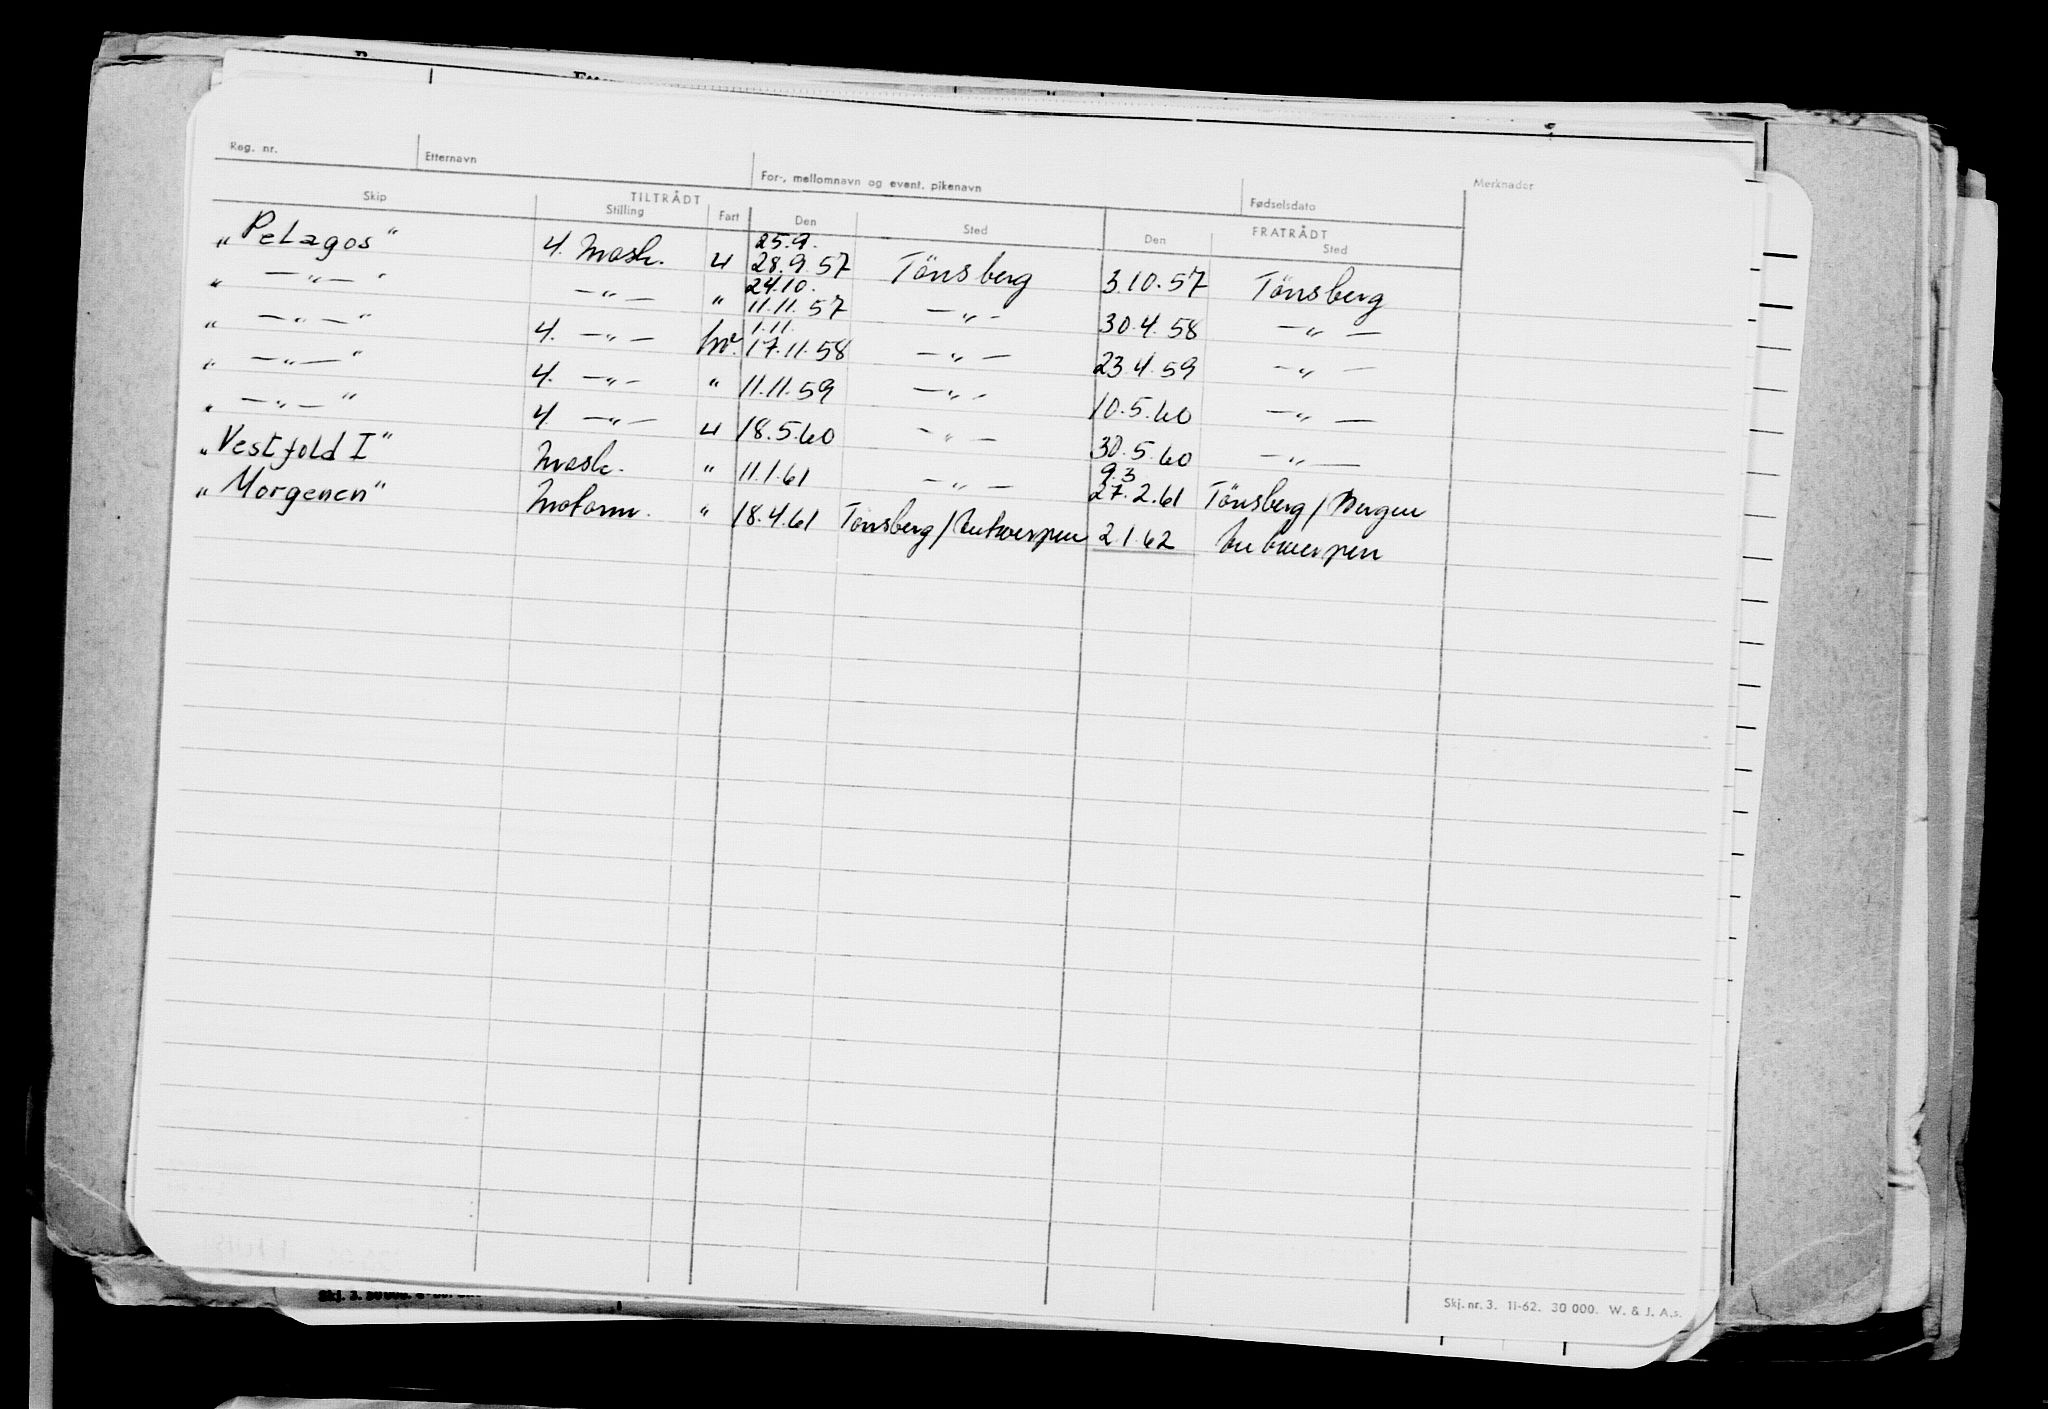 Reg. nr. Etternavn For-, mellomnavn og event. pikenavn Fødselsdato Merknader
Skip TILTRÅDT Stilling Fart Den Sted Den FRATRÅDT Sted
25.9.
„Pelagos" 4. Mask. u 28.9 57 Tönsberg 3.10.57 Tönsberg
24.10.
„ —„— " —„— " 11.11.57 —„— 30.4.58 —„—
1.11.
„ —„— " 4. —„— hv. 17.11.58 —„— 23.4.59 —„—
„ —„— " 4. —„— " 11.11.59 —„— 10.5.60 —„—
„ —„— " 4. —„— u 18.5.60 —„— 30.5.60 —„—
9.3
„Vestfold I" Mask. " 11.1.61 —„— 27.2.61 Tönsberg/Bergen
„Morgenen" Motorm. " 18.4.61 Tönsberg/Antwerpen 2.1.62 Antwerpen
Skj. nr. 3. 11-62. 30 000. W. & J. A.s.
Skj. 3. 30 000.